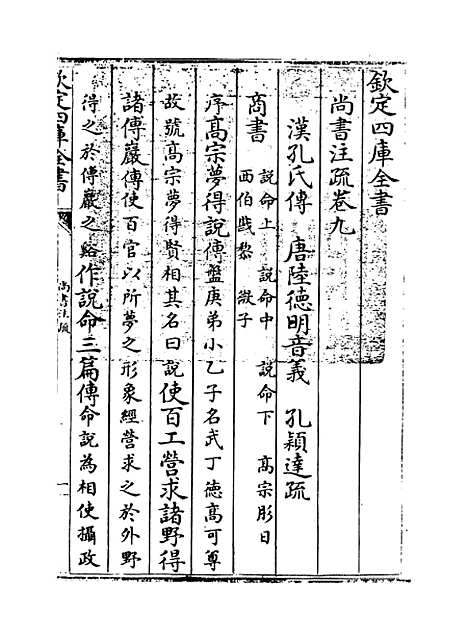 欽定四庫全書
尚書注疏卷九
漢孔氏傳 唐陸德明音義 孔穎達疏
商書
說命上 說命中 說命下 高宗肜日
西伯戡黎 微子
序高宗夢得說傳盤庚弟小乙子名武丁德高可尊
故號高宗夢得賢相其名曰說使百工營求諸野得
諸傅巖傳使百官以所夢之形象經營求之於外野
得之於傅巖之谿作說命三篇傳命說為相使攝政
欽定四庫全書
尚書注疏